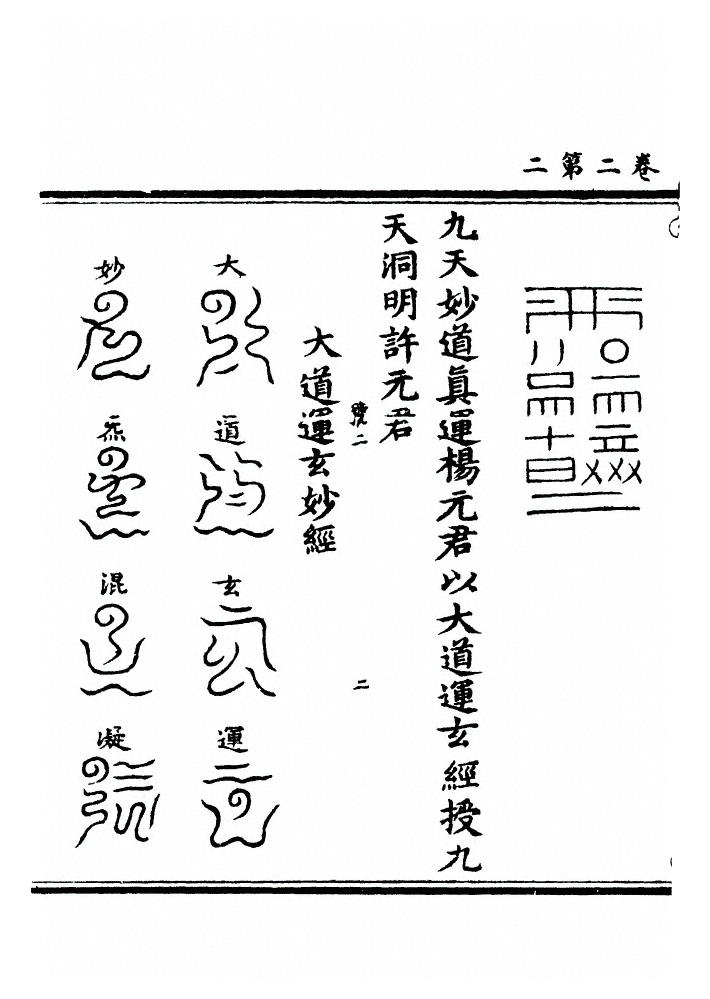 卷二第二
九天妙道真運楊元君以大道運玄經授九
天洞明許元君
號二
二
大道運玄妙經
大道玄運
妙炁混凝